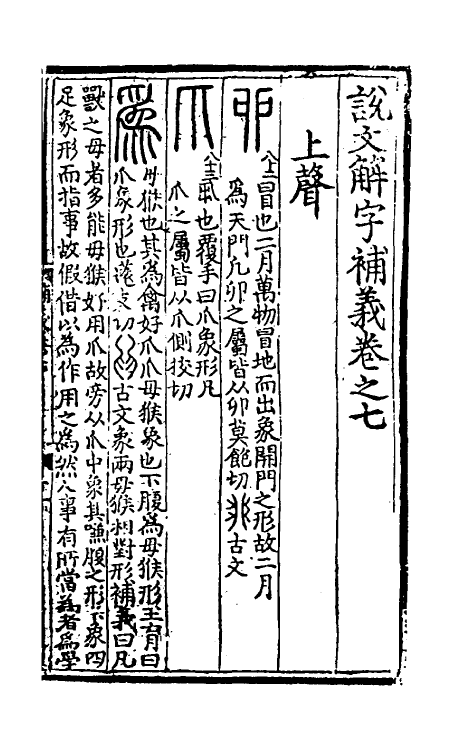 說文解字補義卷之七
上聲
卯 冒也二月萬物冒地而出象開門之形故二月
爲天門凡卯之屬皆从卯莫飽切 古文
爪 丮也覆手曰爪象形凡
爪之屬皆从爪側狡切
爲 母猴也其為禽好爪爪母猴象也下腹為母猴形王育曰
爪象形也薳支切 古文象兩母猴相對形補義曰凡
獸之母者多能母猴好用爪故旁从爪中象其 腹之形下象四
足象形而指事故假借以為作用之為然人事有所當為者為學